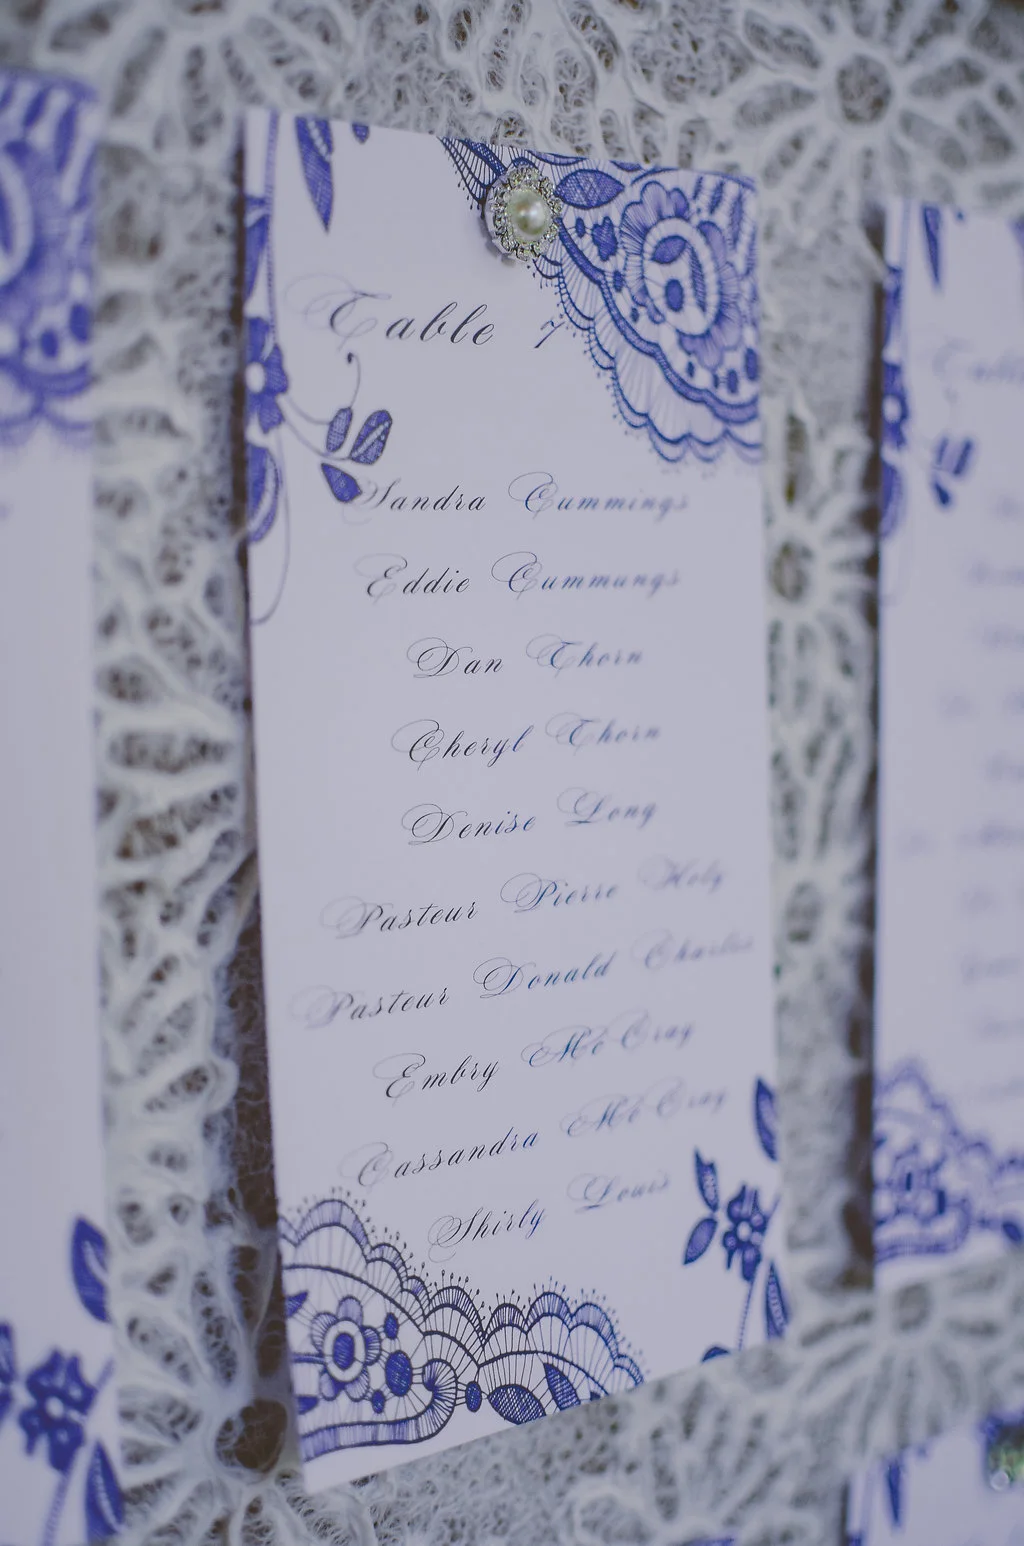 Table 7
Sandra Cummings
Eddie Cummungs
Dan Thorn
Cheryl Thorn
Denise Long
Pasteur Pierre Holy
Pasteur Donald Charles
Embry McCray
Cassandra McCray
Shirly Louis